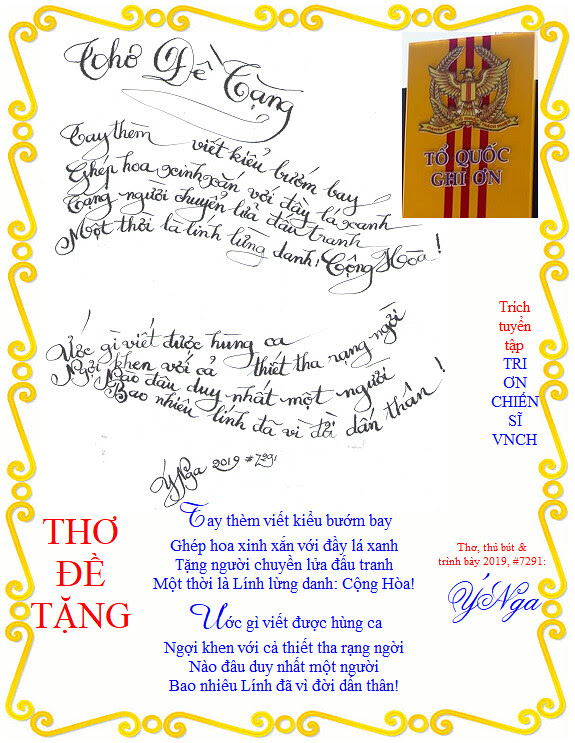 Thơ Đề Tặng
Tay thèm viết kiểu bướm bay
Ghép hoa xinh xắn với đầy lá xanh
Tặng người chuyển lửa đấu tranh
Một thời là Lính lừng danh: Cộng Hòa!
TỔ QUỐC
GHI ƠN
Ước gì viết được hùng ca
Ngợi khen với cả thiết tha rạng ngời
Nào đâu duy nhất một người
Bao nhiêu lính đã vì đời dấn thân!
ÝNga 2019 #7291
Trích
tuyển
tập
TRI
ƠN
CHIẾN
SĨ
VNCH
THƠ
ĐỀ
TẶNG
Tay thèm viết kiểu bướm bay
Ghép hoa xinh xắn với đầy lá xanh
Tặng người chuyển lửa đấu tranh
Một thời là Lính lừng danh: Cộng Hòa!
Ước gì viết được hùng ca
Ngợi khen với cả thiết tha rạng ngời
Nào đâu duy nhất một người
Bao nhiêu Lính đã vì đời dấn thân!
Thơ, thủ bút &
trình bày 2019, #7291:
ÝNga